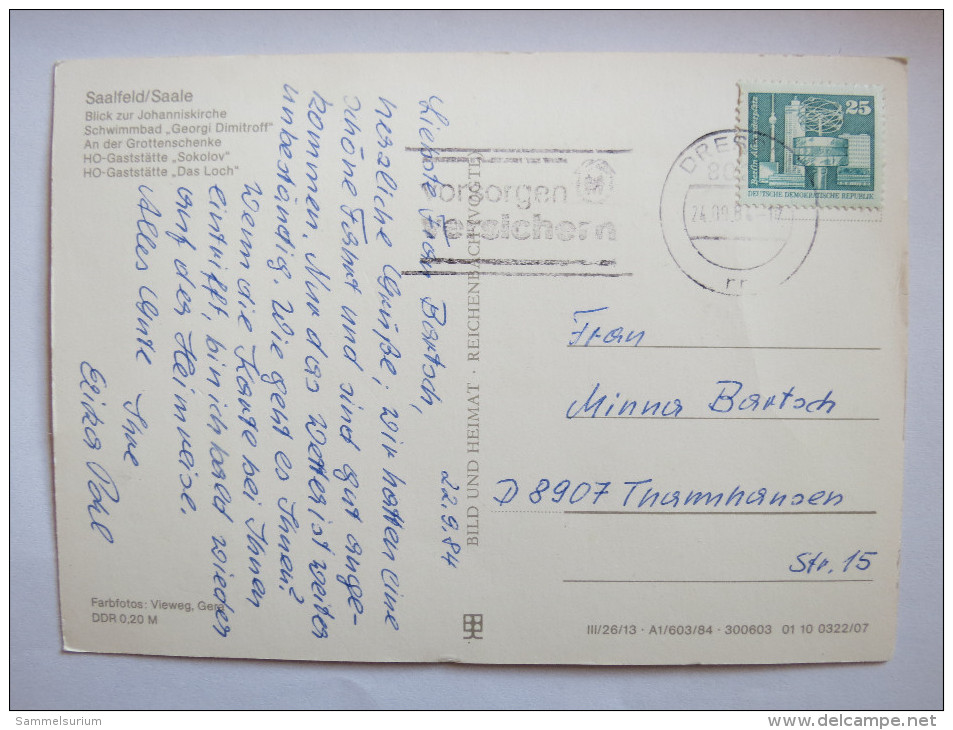 Saalfeld/Saale
Blick zur Johanniskirche
Schwimmbad „Georgi Dimitroff"
An der Grottenschenke
HO-Gaststätte „Sokolov"
HO-Gaststätte „Das Loch"
22.9.84
Liebste Frau Bartsch,
herzliche Grüße, wir hatten eine
schöne Fahrt und sind gut ange-
kommen. Nur das Wetter ist weiter
unbeständig. Wie geht es Ihnen?
Wenn die Karte bei Ihnen
eintrifft, bin ich bald wieder
auf der Heimreise.
Alles Gute Ihre
Erika Pohl
Farbfotos: Vieweg, Gera
DDR 0,20 M
BILD UND HEIMAT · REICHENBACH (VOGTL)
vorsorgen
versichern
DRES
80
24.09.84
25
Berlin, Alexanderplatz
DEUTSCHE DEMOKRATISCHE REPUBLIK
Frau
Minna Bartsch
D 8907 Thannhausen
Str. 15
III/26/13 · A1/603/84 · 300603 01 10 0322/07
Sammelsurium
www.delcampe.net